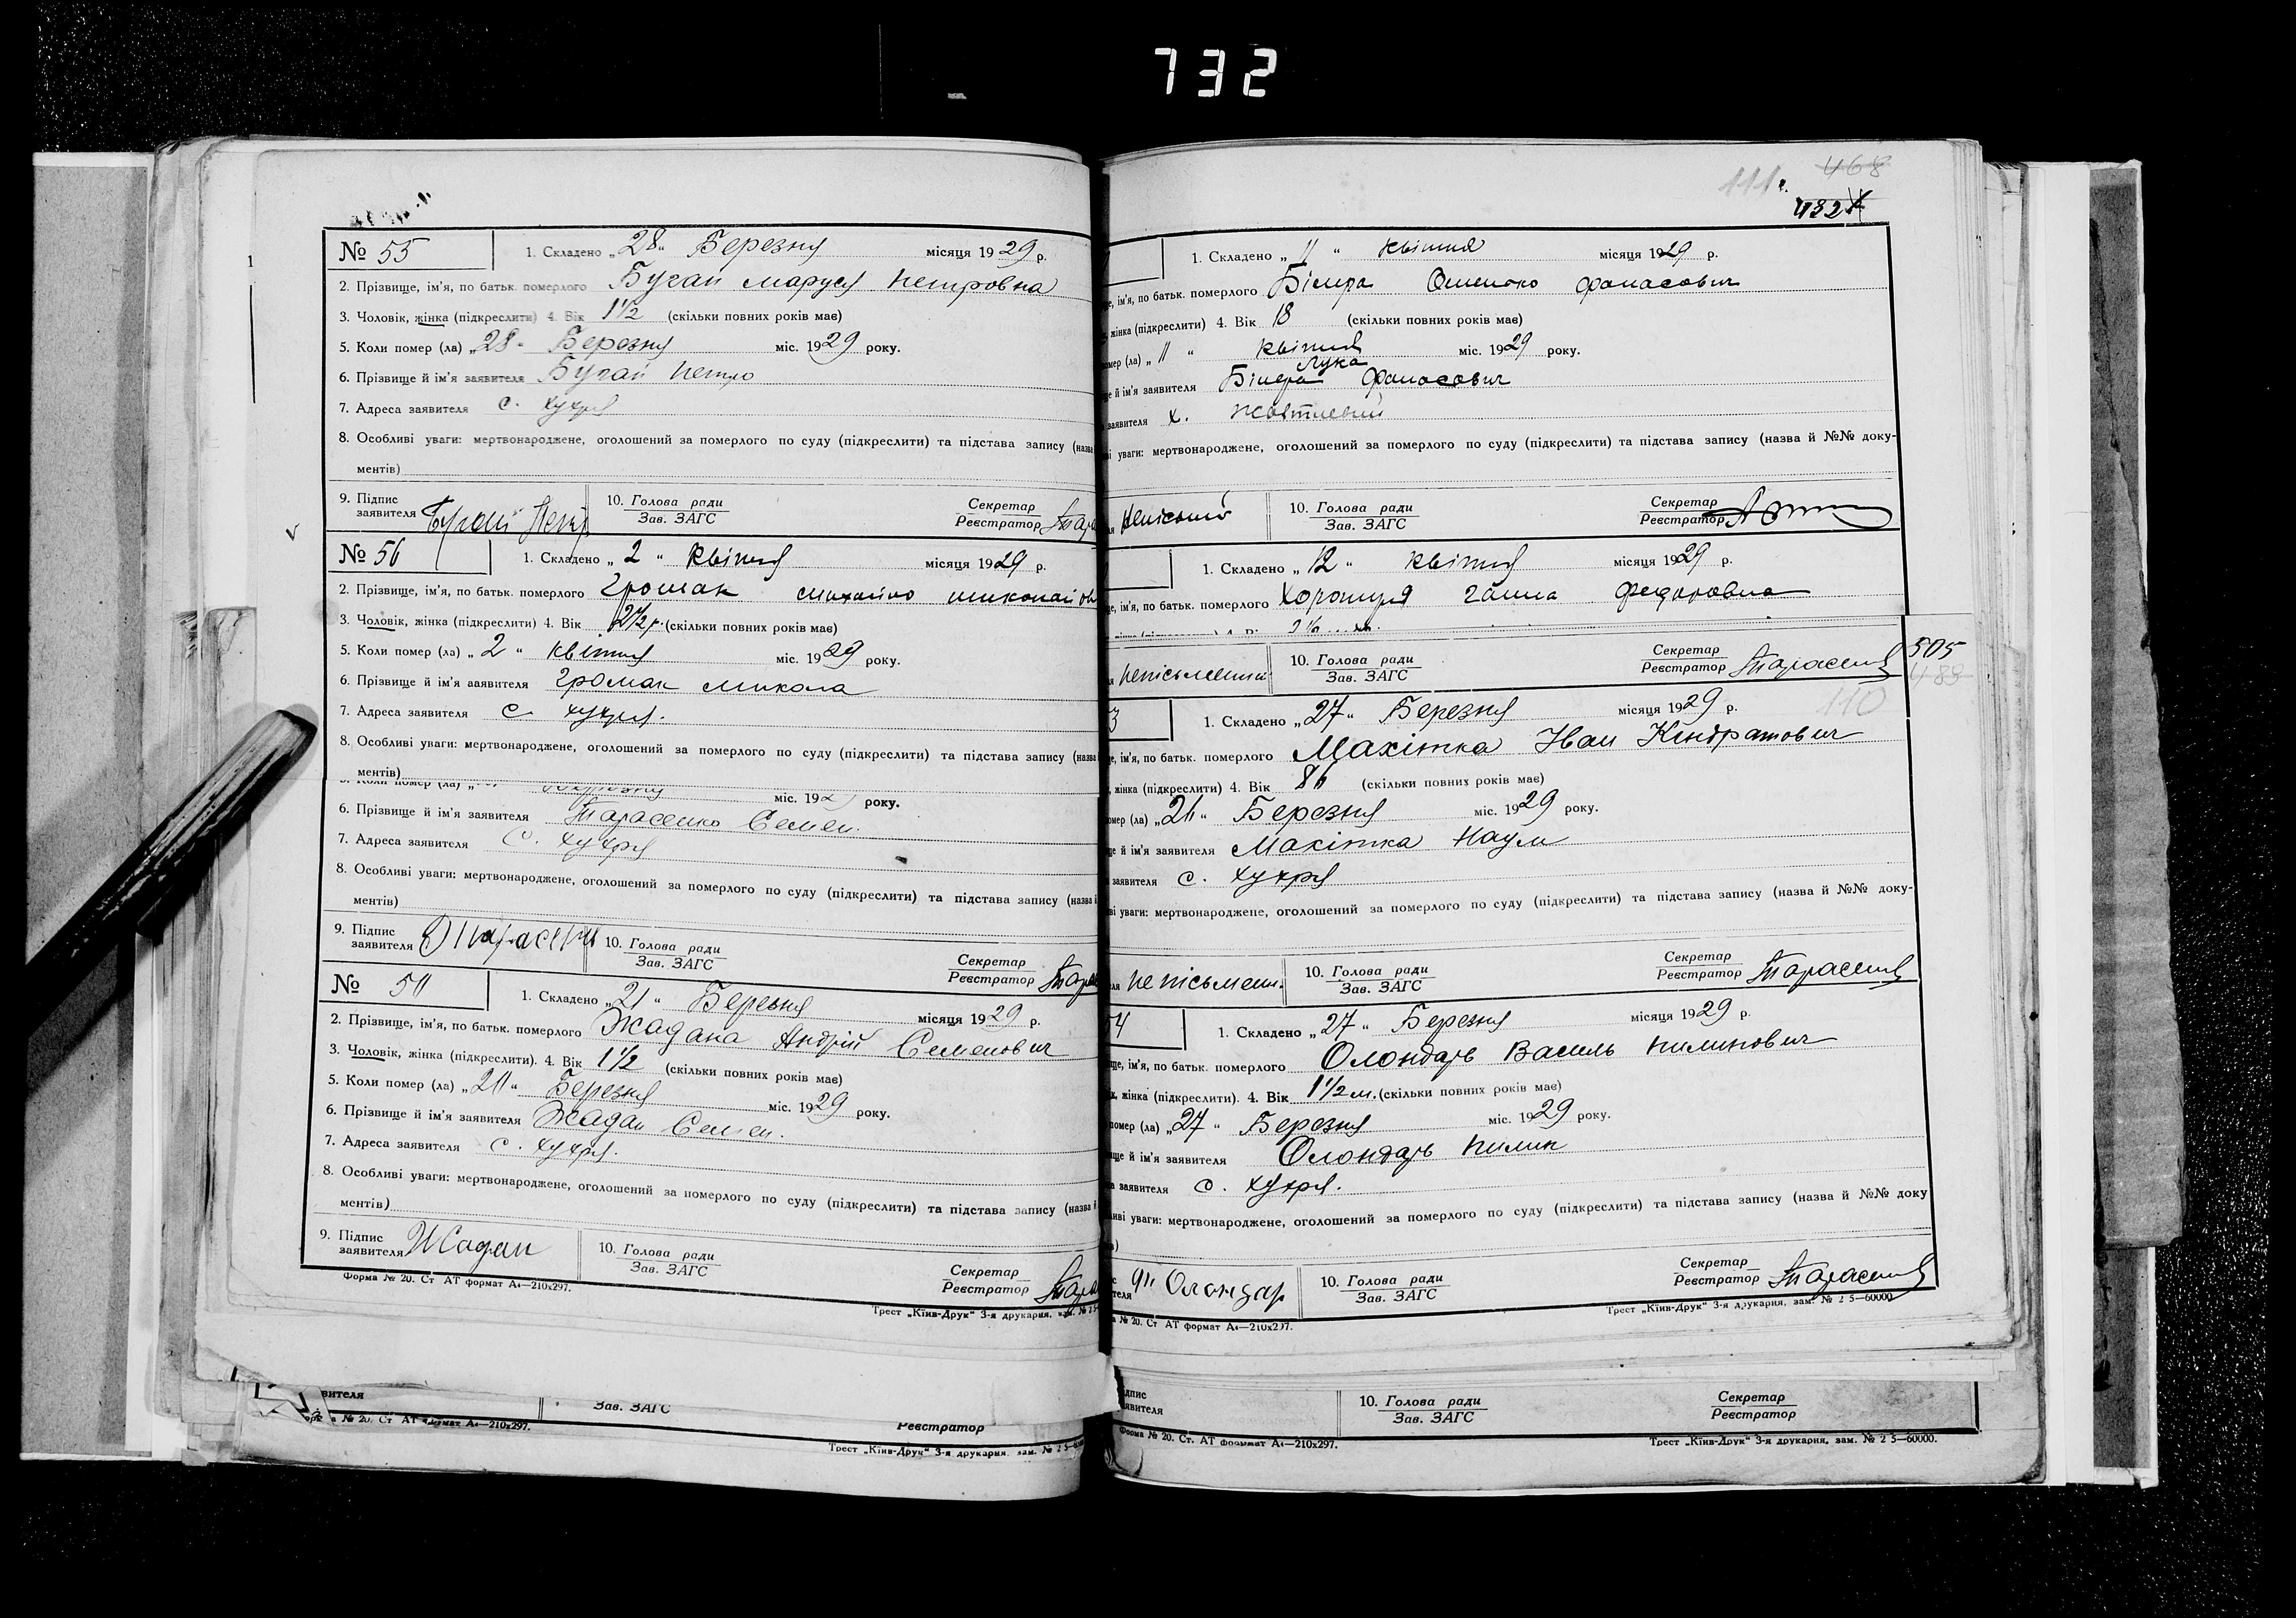 732
№ 55
1. Складено „28“ Березня місяця 1929 р.
2. Прізвище, ім'я, по батьк. померлого Бугай Маруся Петровна
3. Чоловік, жінка (підкреслити) 4. Вік 1½ (скільки повних років має)
5. Коли помер (ла) „28“ Березня міс. 1929 року.
6. Прізвище й ім'я заявителя Бугай Петро
7. Адреса заявителя с. Хухря
8. Особливі уваги: мертвонароджене, оголошений за померлого по суду (підкреслити) та підстава запису (назва
ментів)
9. Підпис заявителя Бугай 10. Голова ради Зав. ЗАГС Секретар Реєстратор
№ 56
1. Складено „2“ Квітня місяця 1929 р.
2. Прізвище, ім'я, по батьк. померлого Громак Михайло
3. Чоловік, жінка (підкреслити) 4. Вік 2½ р. (скільки повних років має)
5. Коли помер (ла) „2“ Квітня міс. 1929 року.
6. Прізвище й ім'я заявителя Громак Микола
7. Адреса заявителя с. Хухря.
8. Особливі уваги: мертвонароджене, оголошений за померлого по суду (підкреслити) та підстава запису (назва
ментів)
міс. 192 року.
6. Прізвище й ім'я заявителя Тарасенко Семен.
7. Адреса заявителя с. Хухря
8. Особливі уваги: мертвонароджене, оголошений за померлого по суду (підкреслити) та підстава запису (назва й
ментів)
9. Підпис заявителя 10. Голова ради Зав. ЗАГС Секретар Реєстратор
№
1. Складено „21“ Березня місяця 1929 р.
2. Прізвище, ім'я, по батьк. померлого Жадана Андрій Семенович
3. Чоловік, жінка (підкреслити). 4. Вік 1½ (скільки повних років має)
5. Коли помер (ла) Березня міс. 1929 року.
6. Прізвище й ім'я заявителя Жадан Семен.
7. Адреса заявителя с. Хухря.
8. Особливі уваги: мертвонароджене, оголошений за померлого по суду (підкреслити) та підстава запису (назва й
ментів)
9. Підпис заявителя Жадан 10. Голова ради Зав. ЗАГС Секретар Реєстратор
Форма № 20. Ст АТ формат А4—210х297.
Трест „Київ-Друк“ 3-я друкарня, зам.
вителя
Зав. ЗАГС
Реєстратор
№ 20. Ст АТ формат А4—210х297.
Трест „Київ-Друк“ 3-я друкарня, зам. № 2 5—
111
468
432
1. Складено „11“ Квітня місяця 1929 р.
ім'я, по батьк. померлого Фанасович
жінка (підкреслити) 4. Вік 18 (скільки повних років має)
(ла) „11“ Квітня міс. 1929 року.
й ім'я заявителя Лука Фанасович
заявителя х. Жовтневий
уваги: мертвонароджене, оголошений за померлого по суду (підкреслити) та підстава запису (назва й №№ доку-
10. Голова ради Зав. ЗАГС Секретар Реєстратор
1. Складено „12“ Квітня місяця 1929 р.
ім'я, по батьк. померлого Ганна Федоровна
10. Голова ради Зав. ЗАГС Секретар Реєстратор
505
110
1. Складено „27“ Березня місяця 1929 р.
ім'я, по батьк. померлого Махітка Іван Кіндратович
жінка (підкреслити) 4. Вік 86 (скільки повних років має)
(ла) Березня міс. 1929 року.
й ім'я заявителя Макітка Наум
заявителя с. Хухря
уваги: мертвонароджене, оголошений за померлого по суду (підкреслити) та підстава запису (назва й №№ доку-
неписьменн. 10. Голова ради Зав. ЗАГС Секретар Реєстратор
1. Складено „27“ Березня місяця 1929 р.
ім'я, по батьк. померлого Олондарь Василь Пилипович
жінка (підкреслити). 4. Вік 1½ м. (скільки повних років має)
(ла) „27“ Березня міс. 1929 року.
й ім'я заявителя Олондарь Пилип
заявителя с. Хухря.
уваги: мертвонароджене, оголошений за померлого по суду (підкреслити) та підстава запису (назва й №№ доку
Олондар 10. Голова ради Зав. ЗАГС Секретар Реєстратор
№ 20. Ст АТ формат А4—210х297.
Трест „Київ-Друк“ 3-я друкарня, зам. № 2 5—60000
10. Голова ради Зав. ЗАГС Секретар Реєстратор
Форма № 20. Ст. АТ формат А4—210х297.
Трест „Київ-Друк“ 3-я друкарня, зам. № 2 5—60000.